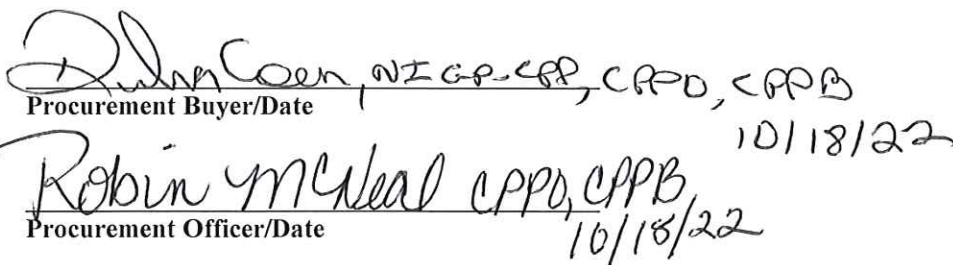 Coen, NIGP-CPP, CPPO, CPPB
Procurement Buyer/Date
10/18/22
Robin McNeal CPPO, CPPB
Procurement Officer/Date
10/18/22